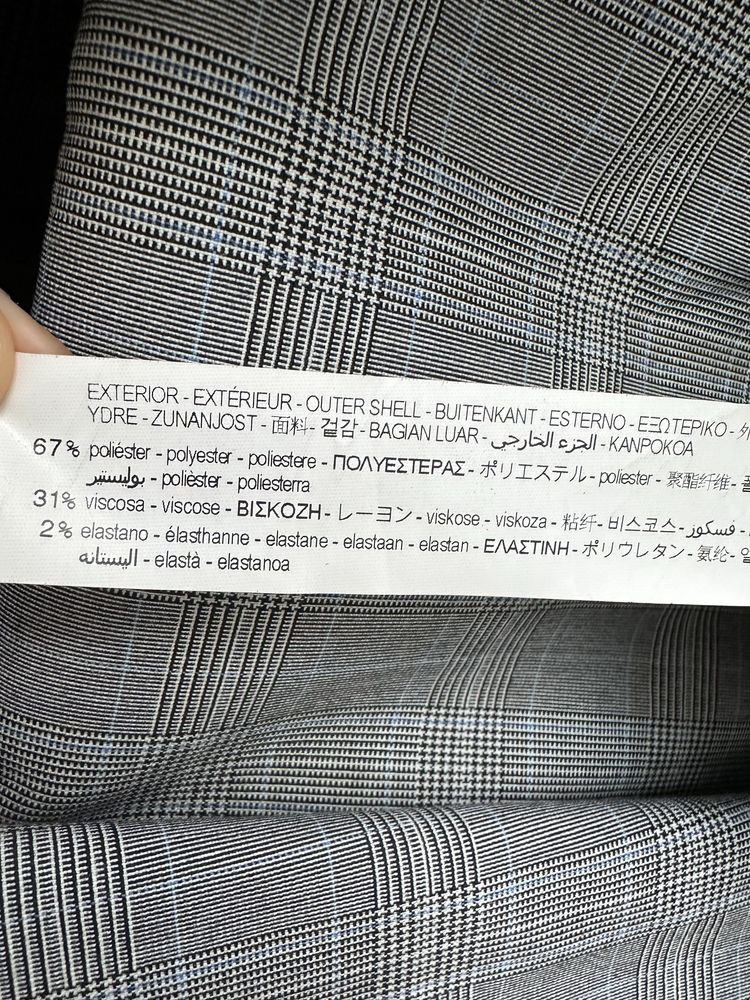 EXTERIOR - EXTÉRIEUR - OUTER SHELL - BUITENKANT - ESTERNO - ΕΞΩΤΕΡΙΚΟ -
YDRE - ZUNANJOST - 面料 - 겉감 - BAGIAN LUAR - الجزء الخارجي - KANPOKOA
67% poliéster - polyester - poliestere - ΠΟΛΥΕΣΤΕΡΑΣ - ポリエステル - poliester - 聚酯纤维 -
بوليستير - polièster - poliesterra
31% viscosa - viscose - ΒΙΣΚΟΖΗ - レーヨン - viskose - viskoza - 粘纤 - 비스코스 - فسكوز -
2% elastano - élasthanne - elastane - elastaan - elastan - ΕΛΑΣΤΙΝΗ - ポリウレタン - 氨纶 -
اليستانه - elastà - elastanoa